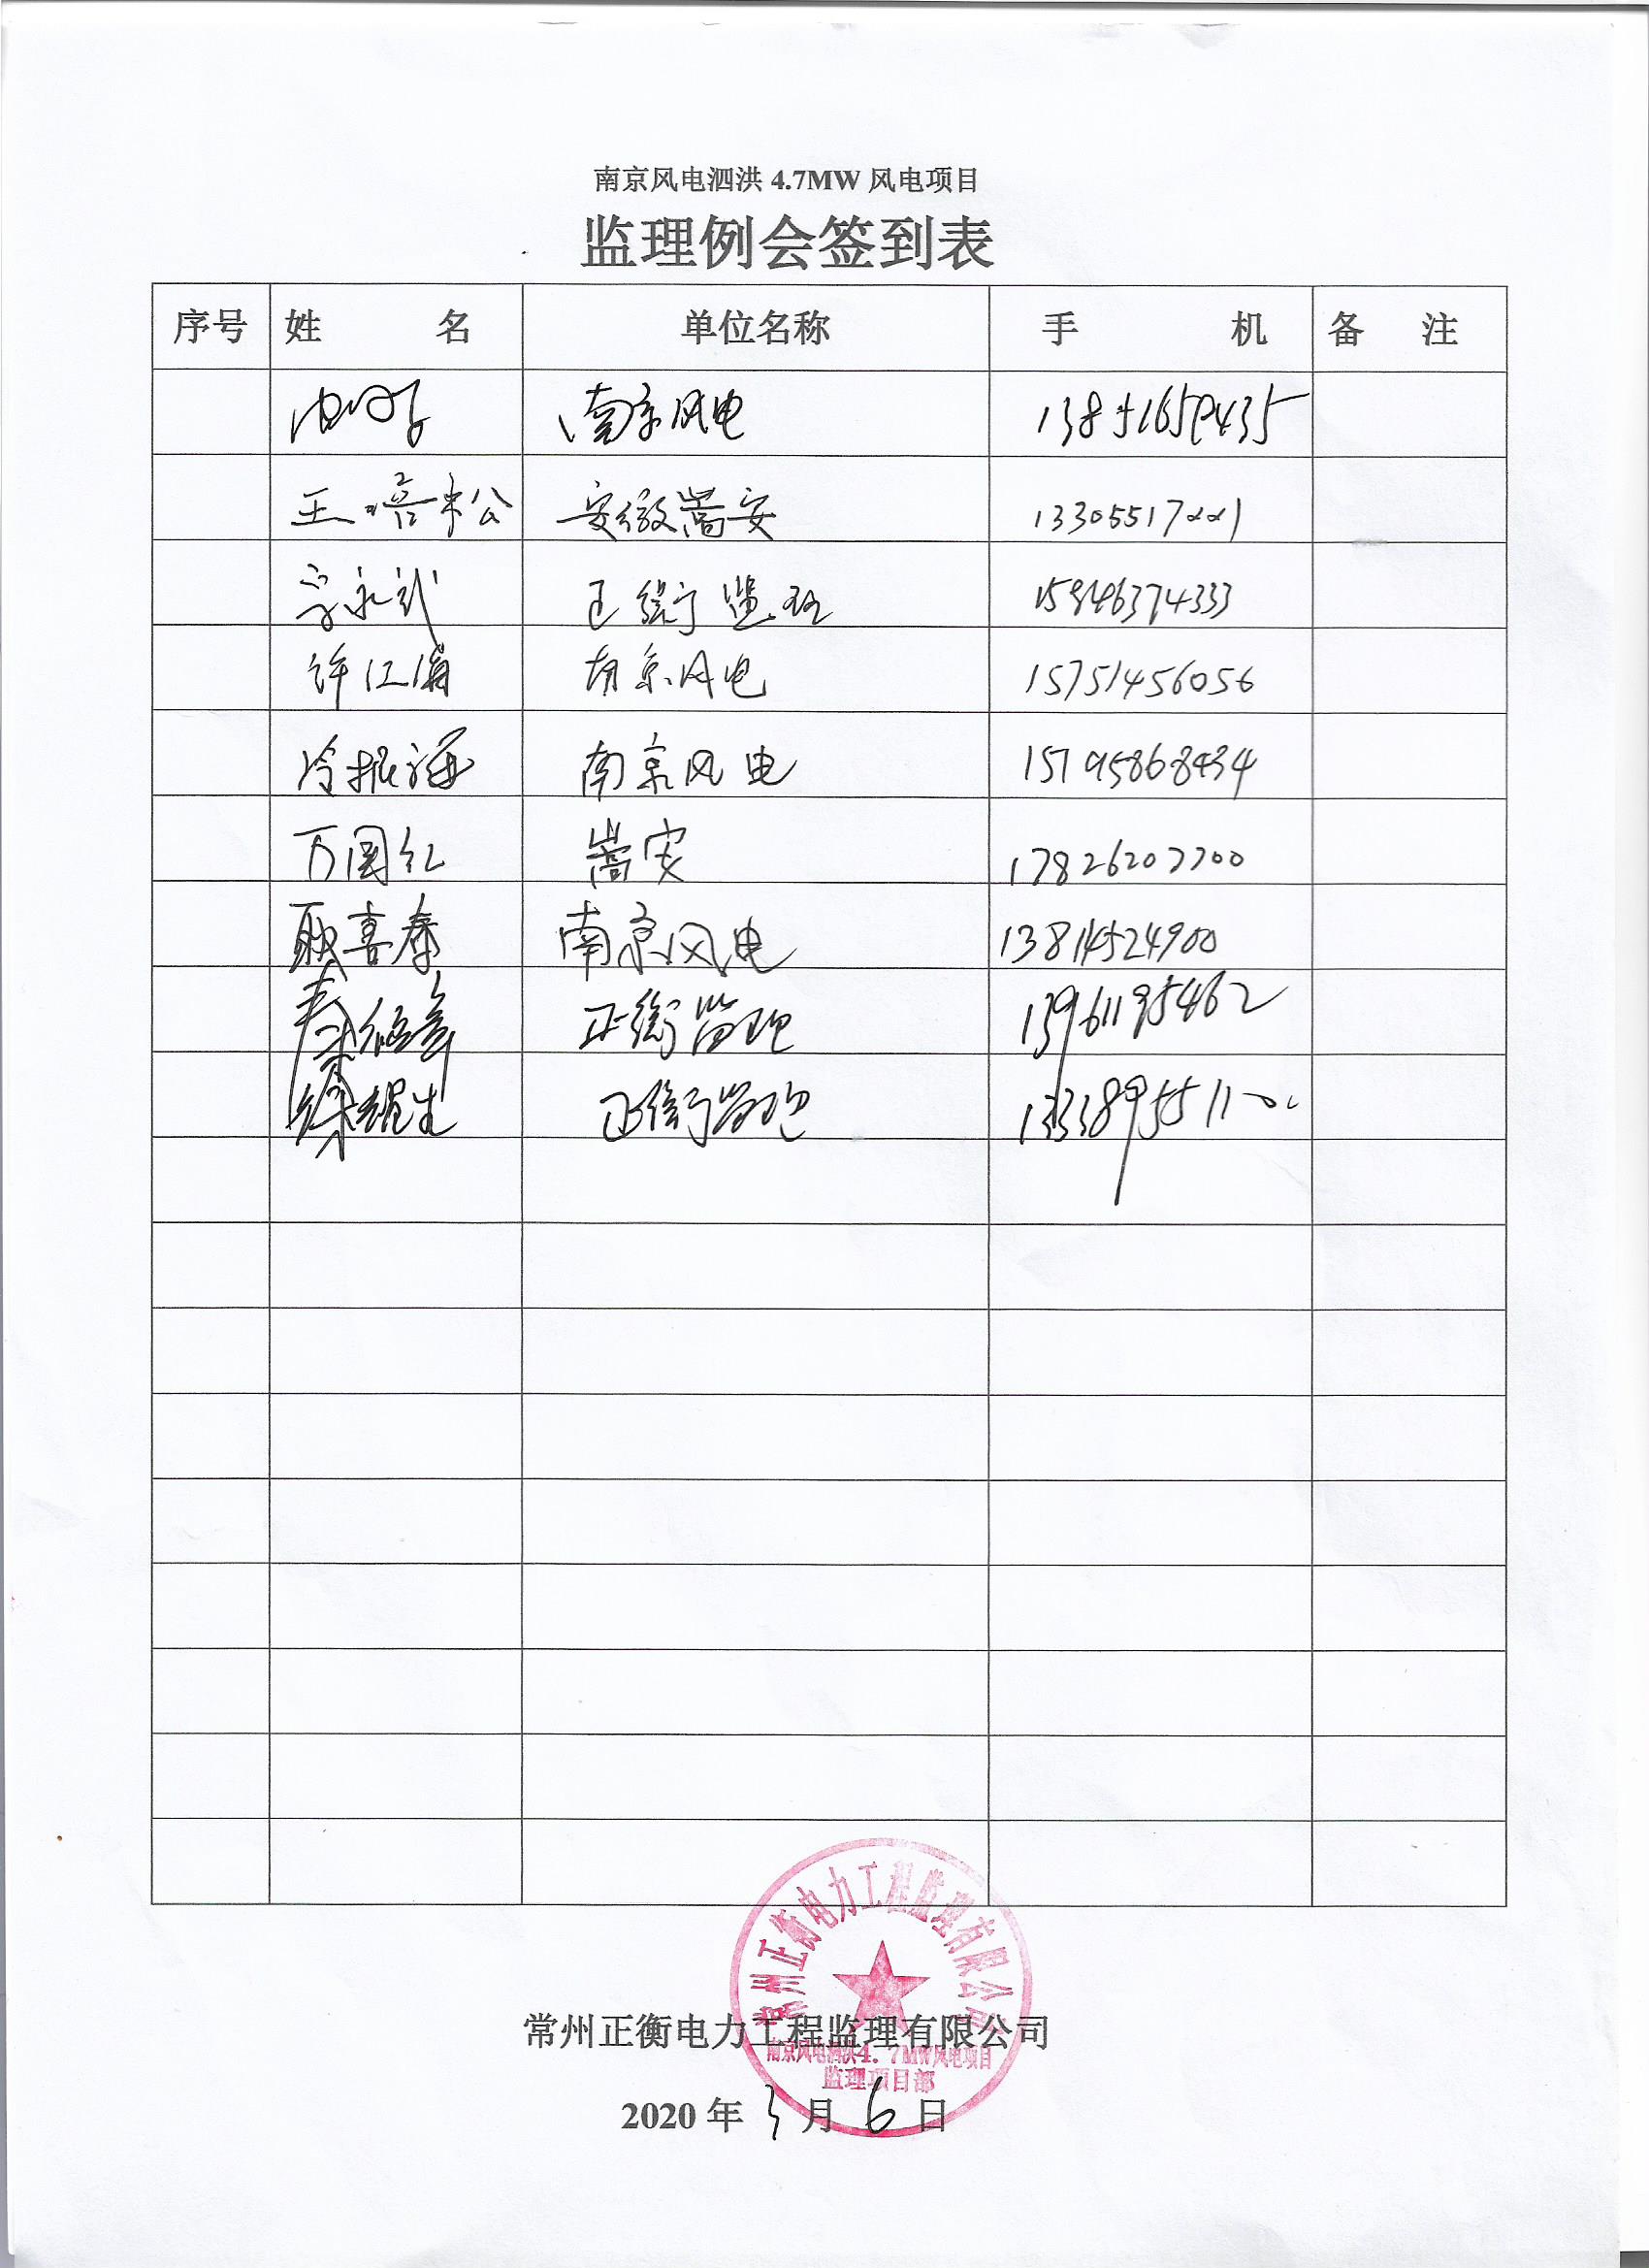 南京风电泗洪 4.7MW 风电项目
监理例会签到表
序号 姓 名 单位名称 手 机 备 注
南京风电
王培松 安徽嵩安 13305517221
正衡监理 15896374333
许江海 南京风电 15751456056
冷振海 南京风电
万国红 嵩安 17826207700
耿喜春 南京风电 13814524900
正衡监理 13961195462
徐耀生 正衡监理
常州正衡电力工程监理有限公司
常州正衡电力工程监理有限公司
南京风电泗洪4.7MW风电项目
监理项目部
2020 年 3 月 6 日